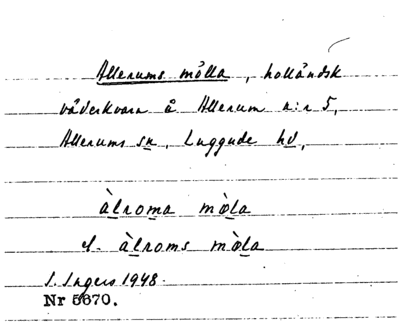 Allerums mölla, holländsk
väderkvarn å Allerum n:r 5,
Allerums sn, Luggude hd,
àlroma mœ̀la
el. àlroms mœ̀la
I. Ingers 1948.
Nr 5670.